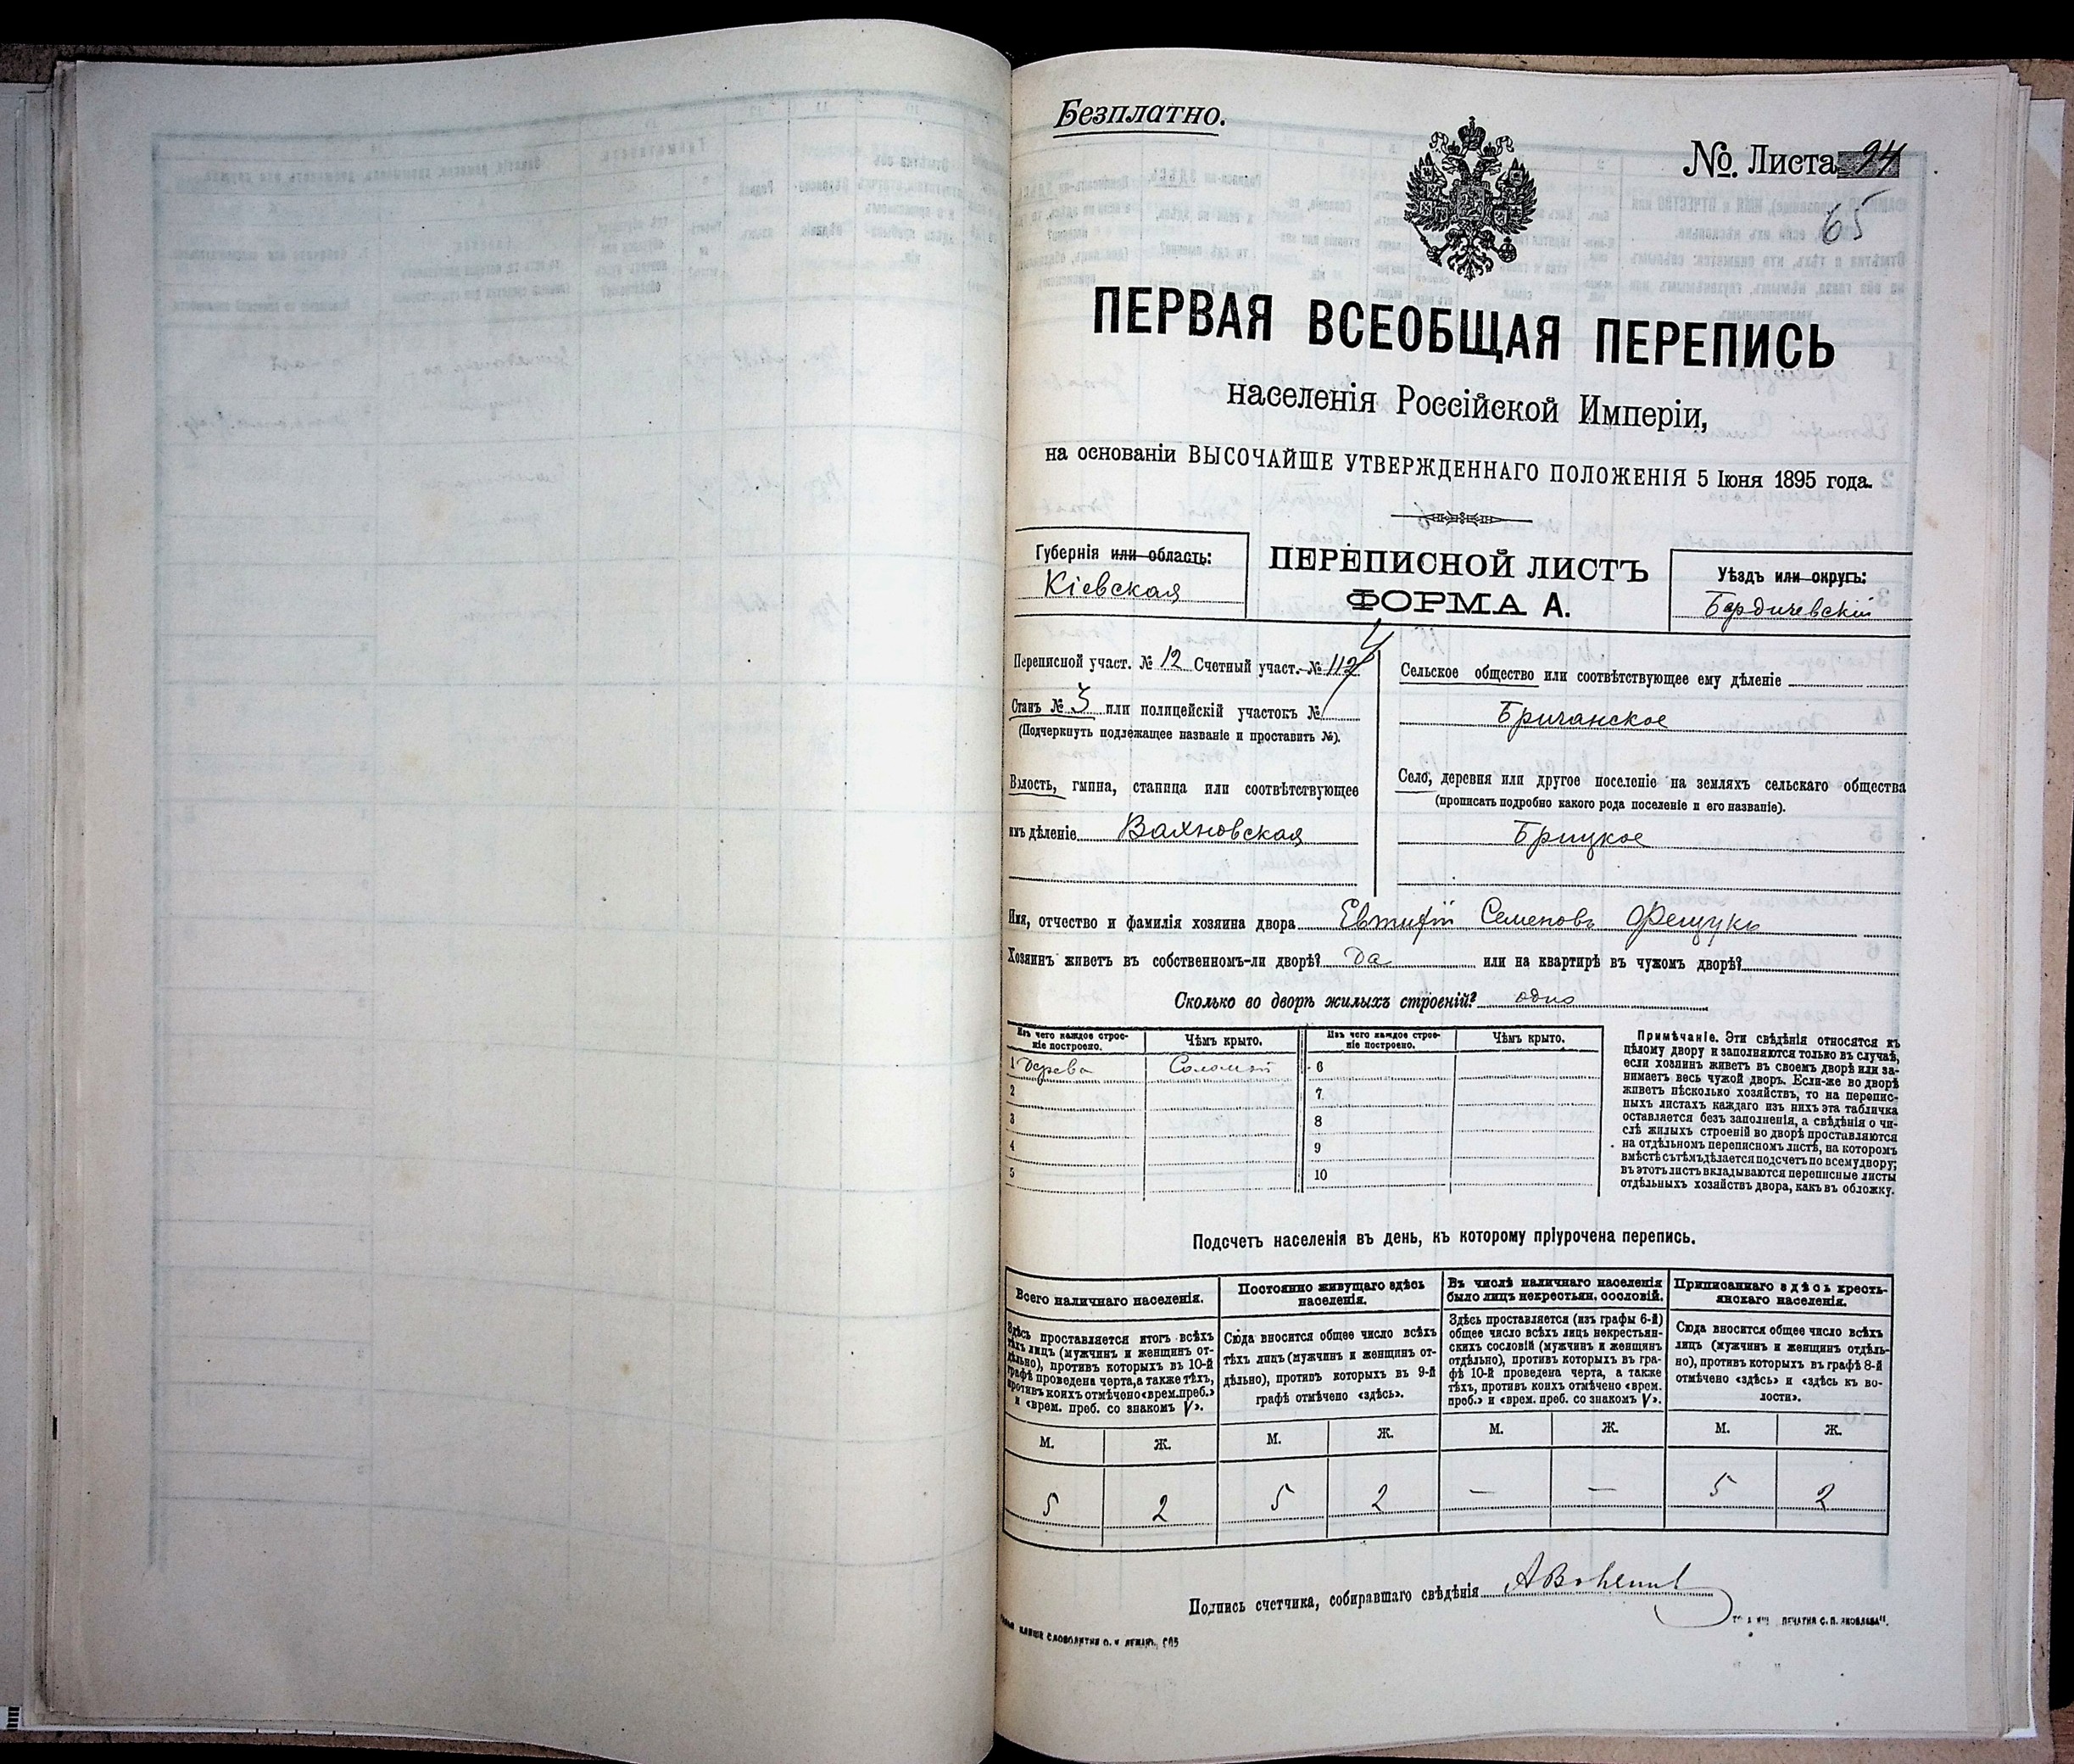 Безплатно.
№ Листа 94
65
ПЕРВАЯ ВСЕОБЩАЯ ПЕРЕПИСЬ
населенія Россійской Имперіи,
на основаніи ВЫСОЧАЙШЕ УТВЕРЖДЕННАГО ПОЛОЖЕНІЯ 5 Іюня 1895 года.
Губернія или область:
Кіевская
ПЕРЕПИСНОЙ ЛИСТЪ
ФОРМА А.
Уѣздъ или округъ:
Бердичевскій
Переписной участ. № 12 Счетный участ. № 112
Станъ № 3 или полицейскій участокъ №
(Подчеркнуть подлежащее названіе и проставить №).
Волость, гмина, станица или соотвѣтствующее
имъ дѣленіе Вахновская
Сельское общество или соотвѣтствующее ему дѣленіе
Бричанское
Село, деревня или другое поселеніе на земляхъ сельскаго общества
(прописать подробно какого рода поселеніе и его названіе).
Брицкое
Имя, отчество и фамилія хозяина двора Евтифій Семеновъ Фещукъ
Хозяинъ живетъ въ собственномъ-ли дворѣ? Да или на квартирѣ въ чужомъ дворѣ?
Сколько во дворѣ жилыхъ строеній? одно
Изъ чего каждое строе-
ніе построено.
Чѣмъ крыто.
Изъ чего каждое строе-
ніе построено.
Чѣмъ крыто.
1 Дерева Соломой 6
2 7
3 8
4 9
5 10
Примѣчаніе. Эти свѣдѣнія относятся къ
цѣлому двору и заполняются только въ случаѣ,
если хозяинъ живетъ въ своемъ дворѣ или за-
нимаетъ весь чужой дворъ. Если-же во дворѣ
живетъ нѣсколько хозяйствъ, то на перепис-
ныхъ листахъ каждаго изъ нихъ эта табличка
оставляется безъ заполненія, а свѣдѣнія о чи-
слѣ жилыхъ строеній во дворѣ проставляются
на отдѣльномъ переписномъ листѣ, на которомъ
вмѣстѣ съ тѣмъ дѣлается подсчетъ по всему двору;
въ этотъ листъ вкладываются переписные листы
отдѣльныхъ хозяйствъ двора, какъ въ обложку.
Подсчетъ населенія въ день, къ которому пріурочена перепись.
Всего наличнаго населенія.
Здѣсь проставляется итогъ всѣхъ
тѣхъ лицъ (мужчинъ и женщинъ от-
дѣльно), противъ которыхъ въ 10-й
графѣ проведена черта, а также тѣхъ,
противъ коихъ отмѣчено «врем. преб.»
и «врем. преб. со знакомъ V».
Постоянно живущаго здѣсь
населенія.
Сюда вносится общее число всѣхъ
тѣхъ лицъ (мужчинъ и женщинъ от-
дѣльно), противъ которыхъ въ 9-й
графѣ отмѣчено «здѣсь».
Въ числѣ наличнаго населенія
было лицъ некрестьян. сословій.
Здѣсь проставляется (изъ графы 6-й)
общее число всѣхъ лицъ некрестьян-
скихъ сословій (мужчинъ и женщинъ
отдѣльно), противъ которыхъ въ гра-
фѣ 10-й проведена черта, а также
тѣхъ, противъ коихъ отмѣчено «врем.
преб.» и «врем. преб. со знакомъ V».
Приписаннаго здѣсь кресть-
янскаго населенія.
Сюда вносится общее число всѣхъ
лицъ (мужчинъ и женщинъ отдѣль-
но), противъ которыхъ въ графѣ 8-й
отмѣчено «здѣсь» и «здѣсь къ во-
лости».
М. Ж. М. Ж. М. Ж. М. Ж.
5 2 5 2 — — 5 2
Подпись счетчика, собиравшаго свѣдѣнія
ПЕЧАТНЯ С. П. ЯКОВЛЕВА".